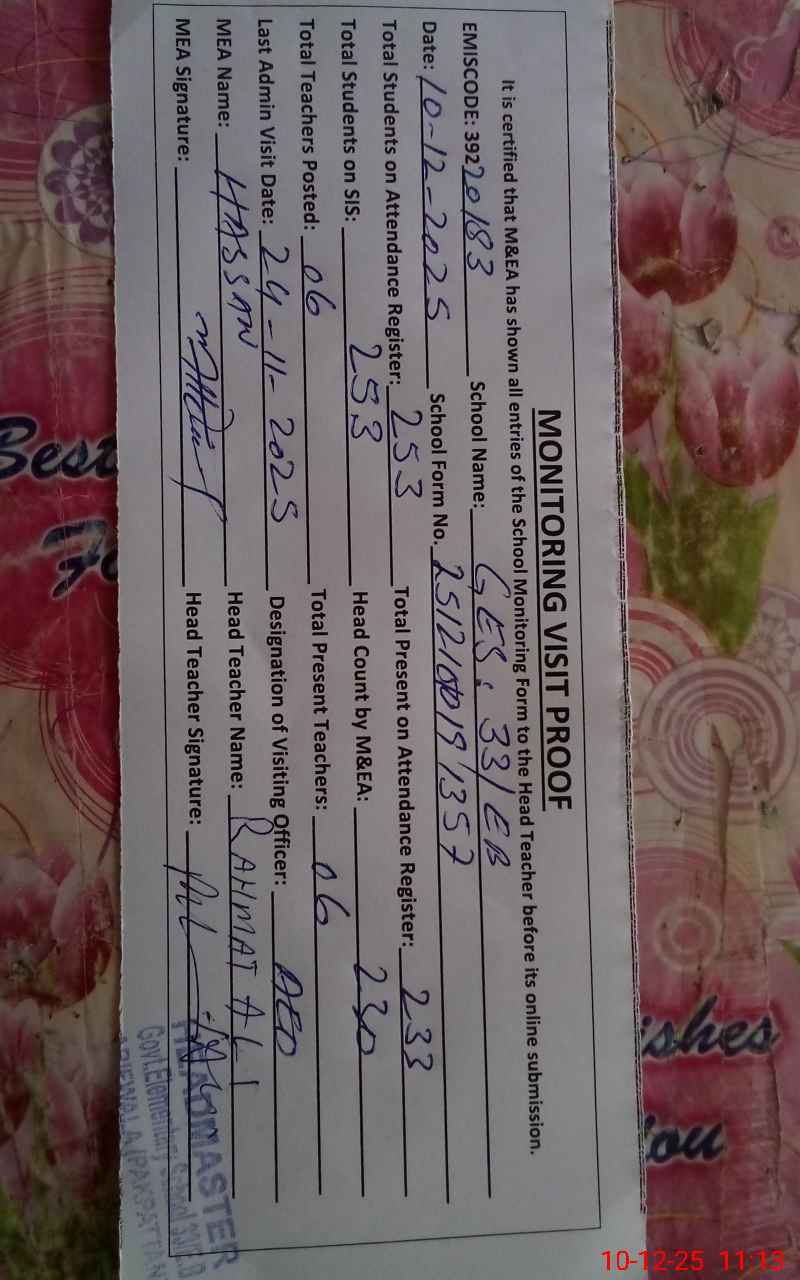 MONITORING VISIT PROOF
It is certified that M&EA has shown all entries of the School Monitoring Form to the Head Teacher before its online submission.
EMISCODE: 39220183 School Name: GES: 33/EB
Date: 10-12-2025 School Form No. 
Total Students on Attendance Register: 253 Total Present on Attendance Register: 233
Total Students on SIS: 253 Head Count by M&EA: 230
Total Teachers Posted: 06 Total Present Teachers: 06
Last Admin Visit Date: 24-11-2025 Designation of Visiting Officer: AEO
MEA Name: HASSAN Head Teacher Name: RAHMAT ALI
MEA Signature: Head Teacher Signature:
HEADMASTER
Govt.Elementary School
ARIFWALA (PAKPATTAN
Best
ishes
Fo
ou
10-12-25 11:13